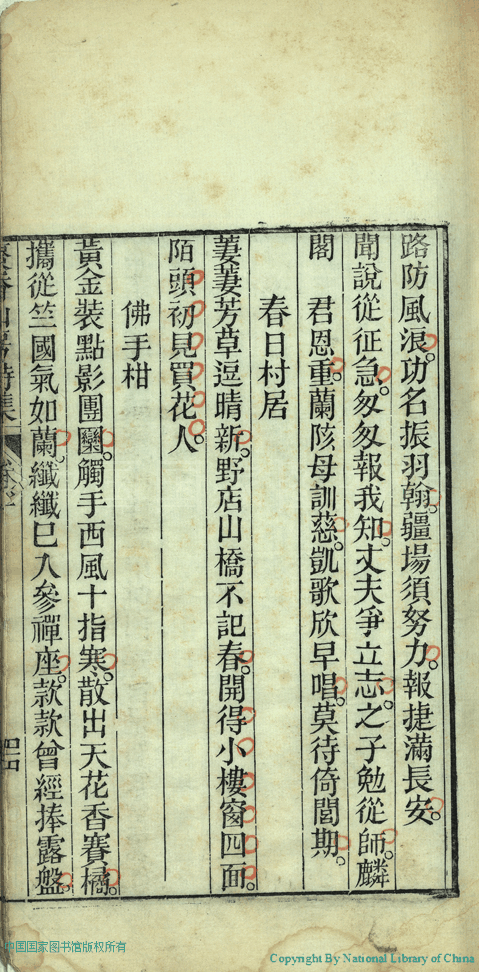 路防風浪。功名振羽翰。疆場須努力。報捷滿長安。
聞說從征急。匆匆報我知。丈夫爭立志。之子勉從師。麟
閣　君恩重。蘭陔母訓慈。凱歌欣早唱。莫待倚閭期。
春日村居
萋萋芳草逗晴新。野店山橋不記春。開得小樓窗四面。
陌頭初見買花人。
佛手柑
黃金裝點影團圞。觸手西風十指寒。散出天花香賽橘。
攜從竺國氣如蘭。纖纖巳入參禪座。款款曾經捧露盤。
山房詩集
四
中国国家图书馆版权所有
Copyright By National Library of China